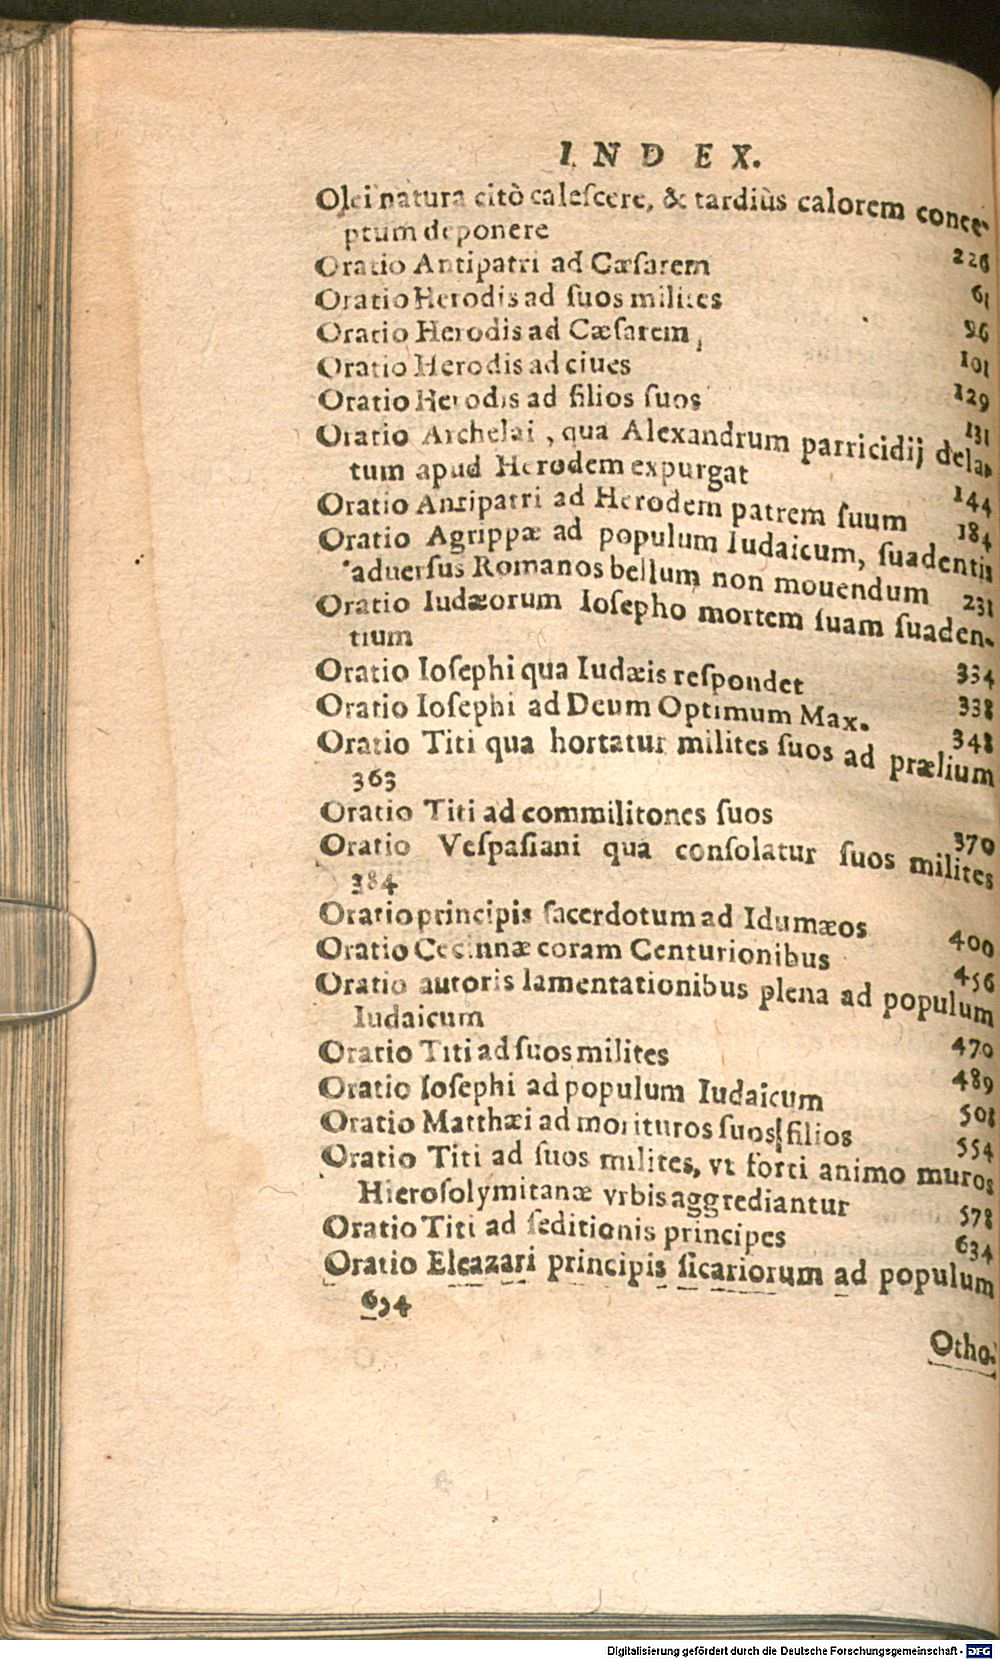 INDEX.
Olei natura citò calescere, & tardiùs calorem conce-
ptum deponere 226
Oratio Antipatri ad Cæsarem 61
Oratio Herodis ad suos milites 96
Oratio Herodis ad Cæsarem, 101
Oratio Herodis ad ciues 129
Oratio Herodis ad filios suos 131
Oratio Archelai, qua Alexandrum parricidij dela-
tum apud Herodem expurgat 144
Oratio Antipatri ad Herodem patrem suum 184
Oratio Agrippæ ad populum Iudaicum, suadentis
aduersus Romanos bellum non mouendum 231
Oratio Iudæorum Iosepho mortem suam suaden-
tium 334
Oratio Iosephi qua Iudæis respondet 338
Oratio Iosephi ad Deum Optimum Max. 348
Oratio Titi qua hortatur milites suos ad prælium
363
Oratio Titi ad commilitones suos 370
Oratio Vespasiani qua consolatur suos milites
384
Oratio principis sacerdotum ad Idumæos 400
Oratio Cecinnæ coram Centurionibus 456
Oratio autoris lamentationibus plena ad populum
Iudaicum 470
Oratio Titi ad suos milites 489
Oratio Iosephi ad populum Iudaicum 508
Oratio Matthæi ad morituros suos filios 554
Oratio Titi ad suos milites, vt forti animo muros
Hierosolymitanæ vrbis aggrediantur 578
Oratio Titi ad seditionis principes 634
Oratio Eleazari principis sicariorum ad populum
694
Otho.
Digitalisierung gefördert durch die Deutsche Forschungsgemeinschaft - DFG